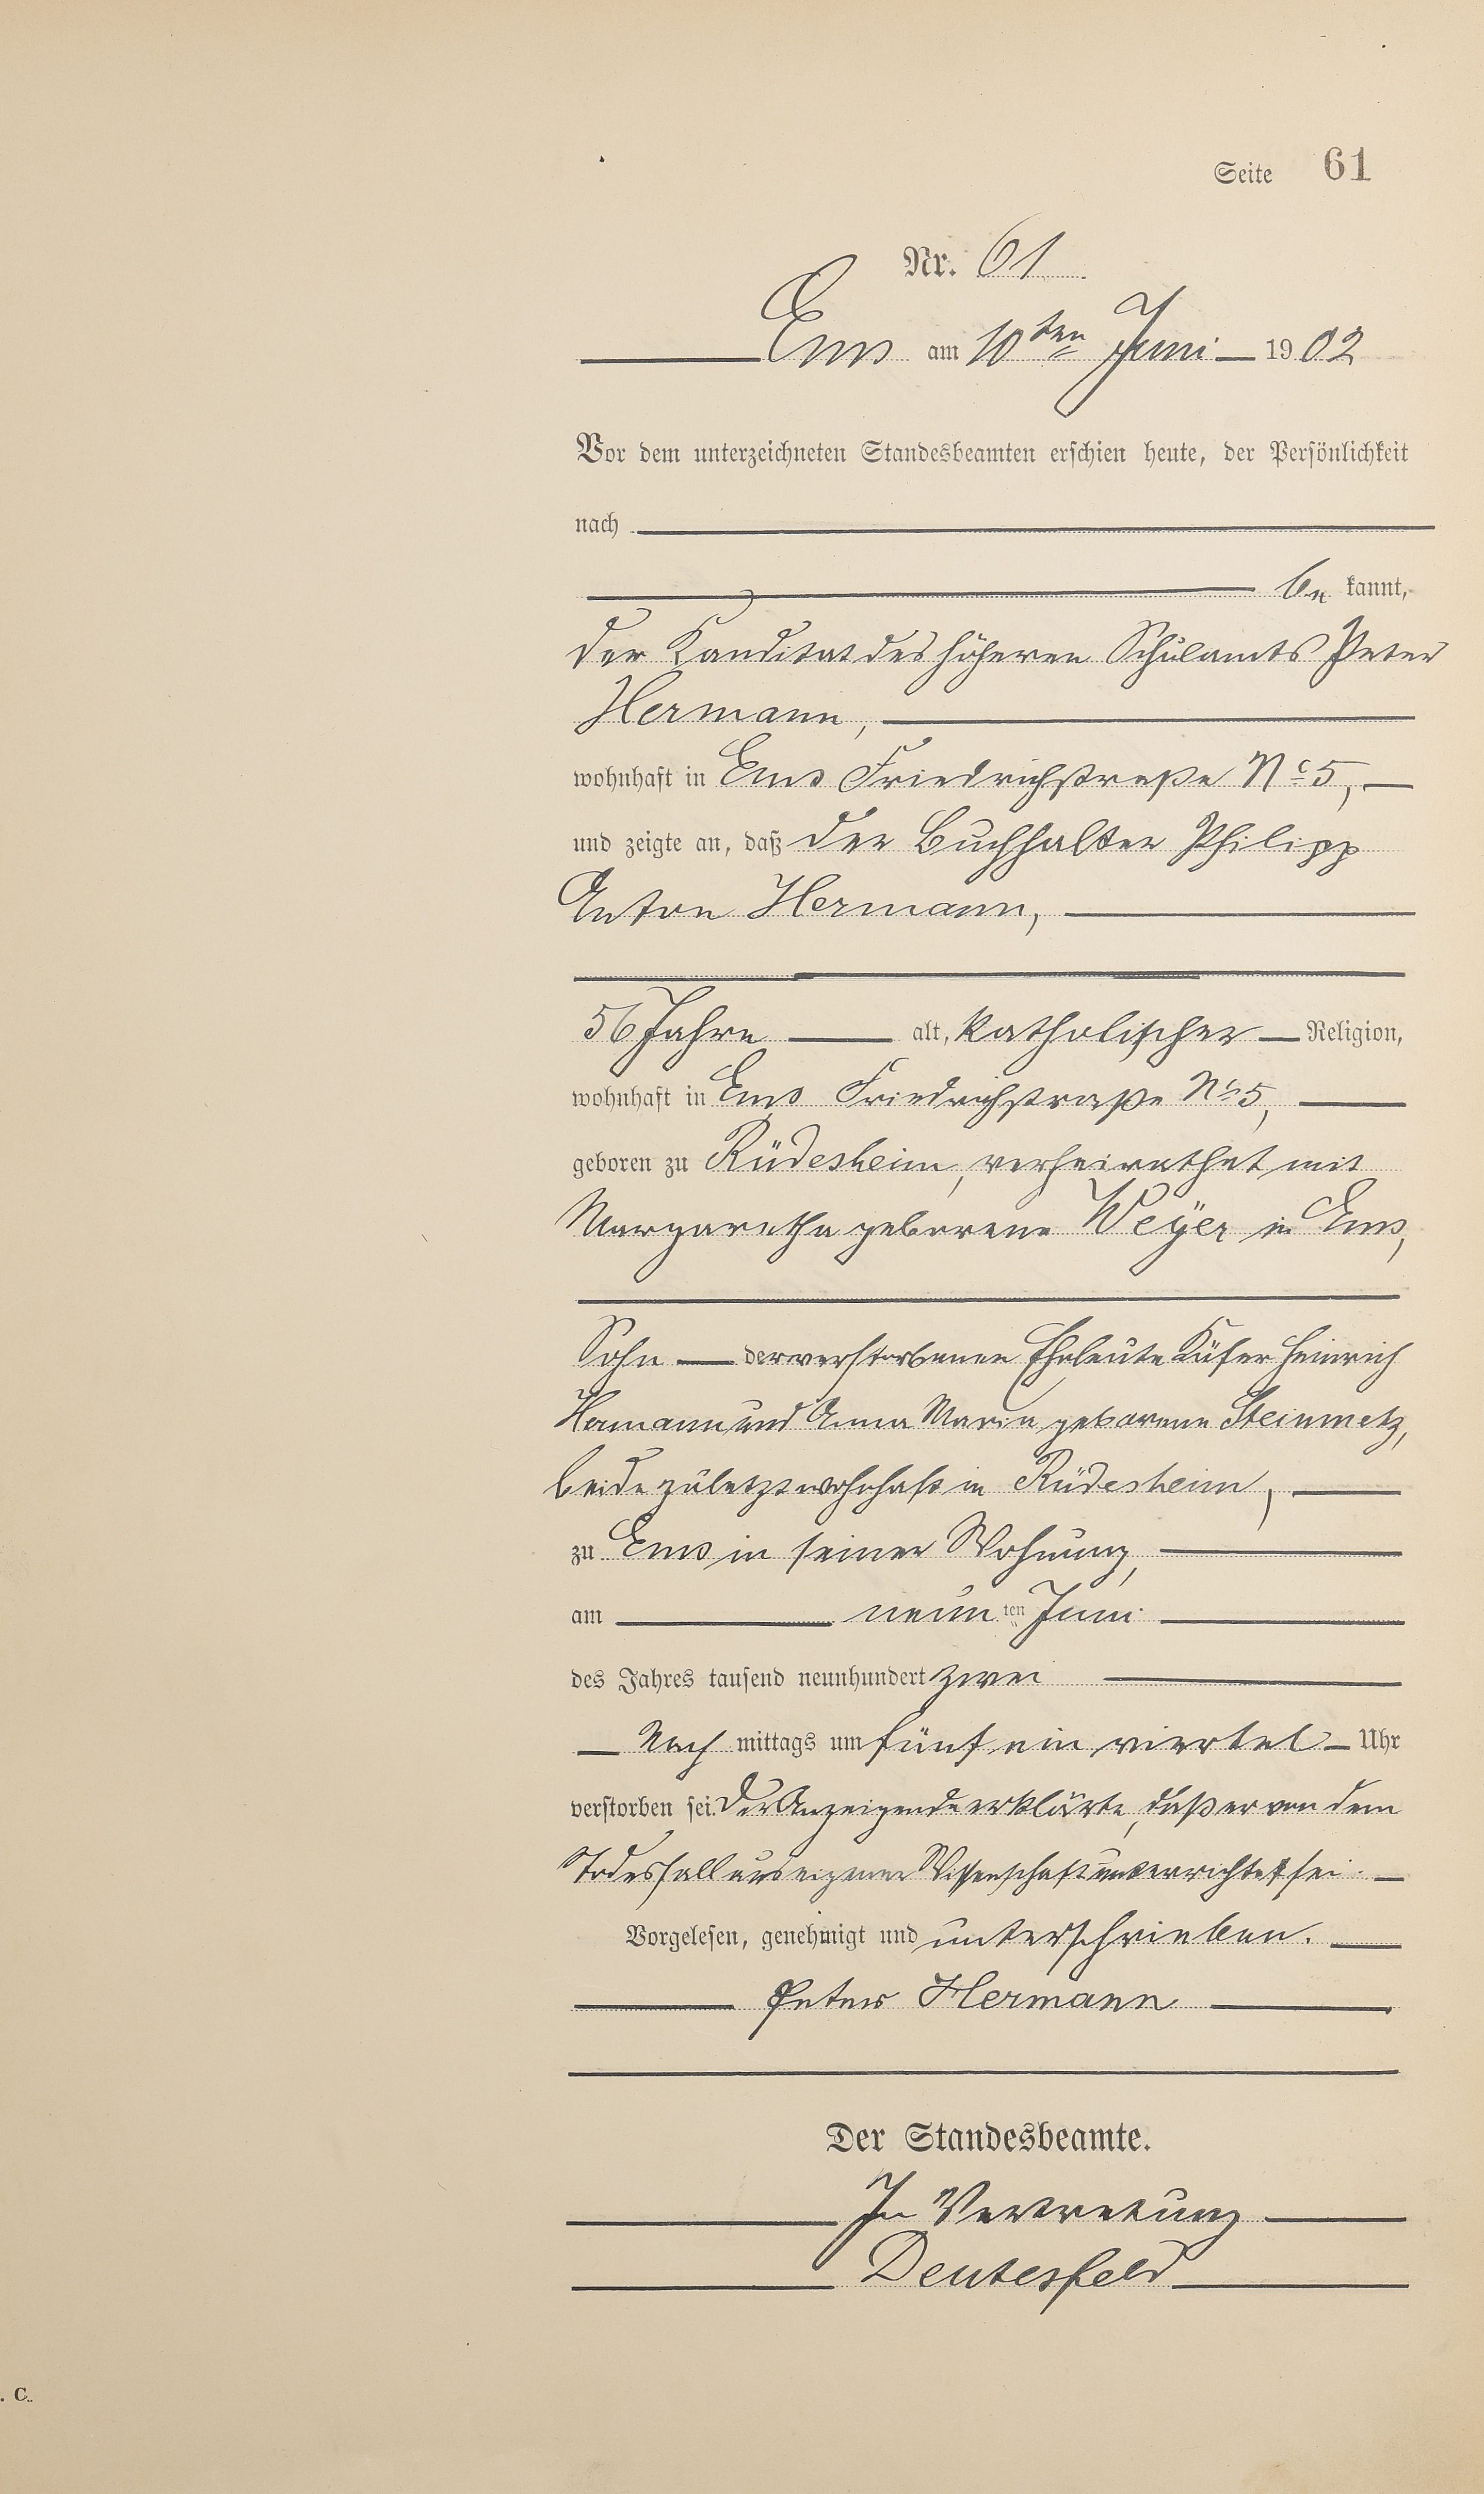 Seite 61
Nr. 61
Ems am 10ten Juni 1902
Vor dem unterzeichneten Standesbeamten erschien heute, der Persönlichkeit
nach
be kannt,
der Kanditat des höheren Schulamts Peter
Hermann,
wohnhaft in Ems Friedrichstraße No 5,
und zeigte an, daß der Buchhalter Philipp
Anton Hermann,
56 Jahre alt, katholischer Religion,
wohnhaft in Ems Friedrichstraße No 5,
geboren zu Rüdesheim, verheirathet mit
Margaretha geborene Weyer in Ems,
Sohn der verstorbenen Eheleute Küfer Heinrich
Hermann und Anna Maria geborene Steinmetz,
beide zuletzt wohnhaft in Rüdesheim,
zu Ems in seiner Wohnung,
am neun ten Juni
des Jahres tausend neunhundert zwei
Nach mittags um fünf ein viertel Uhr
verstorben sei. Der Anzeigende erklärte, daß er von dem
Todesfall aus eigener Wissenschaft unterrichtet sei.
Vorgelesen, genehmigt und unterschrieben.
Peter Hermann
Der Standesbeamte.
In Vertretung
Deutesfeld
. C.